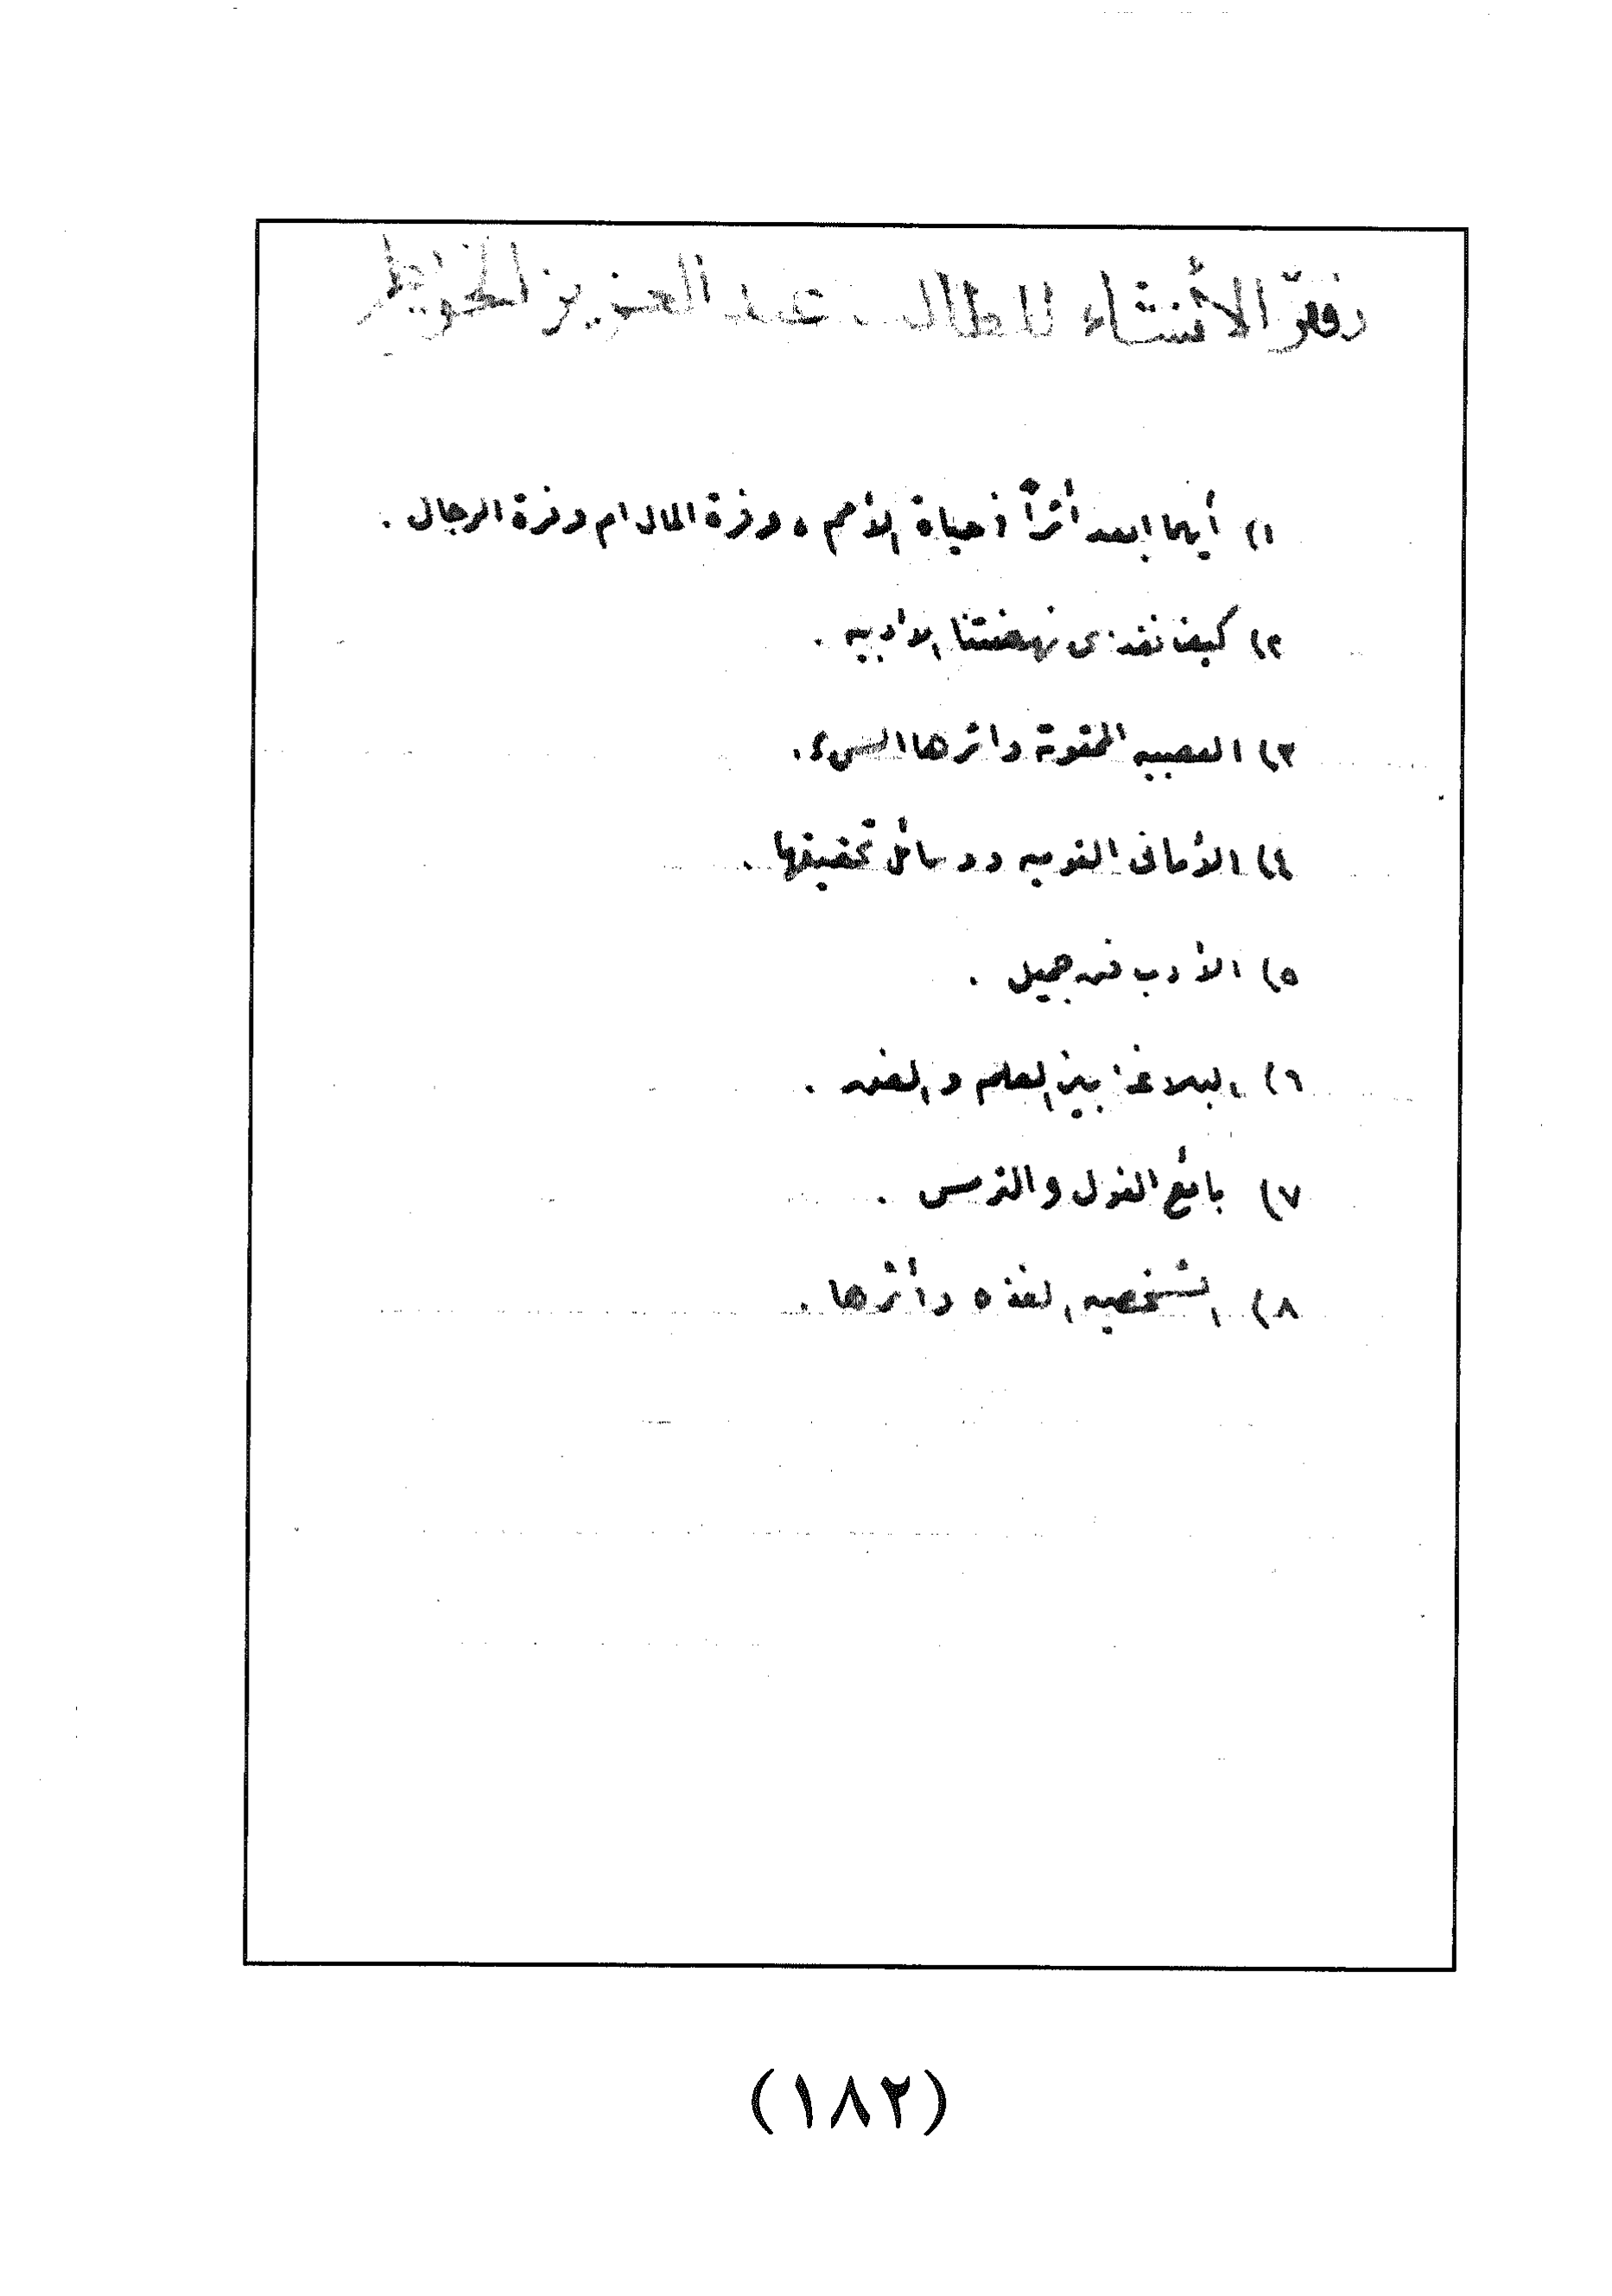 دفتر الأنشاء للطالب عبد العزيز الخويطر
١) أيهما ابعد أثراً في حياة الأمم ، وفرة المال ام وفرة الرجال .
٢) كيف نغذى نهضتنا الادبيه .
٣) العصبيه الممقوتة واثرها السيء .
٤) الأمانى القوميه ووسائل تحقيقها .
٥) الأدب فن جميل .
٦) البلاغة بين العلم والفن .
٧) بائع الفول والترمس .
٨) الشخصيه الفذه وأثرها .
(١٨٢)